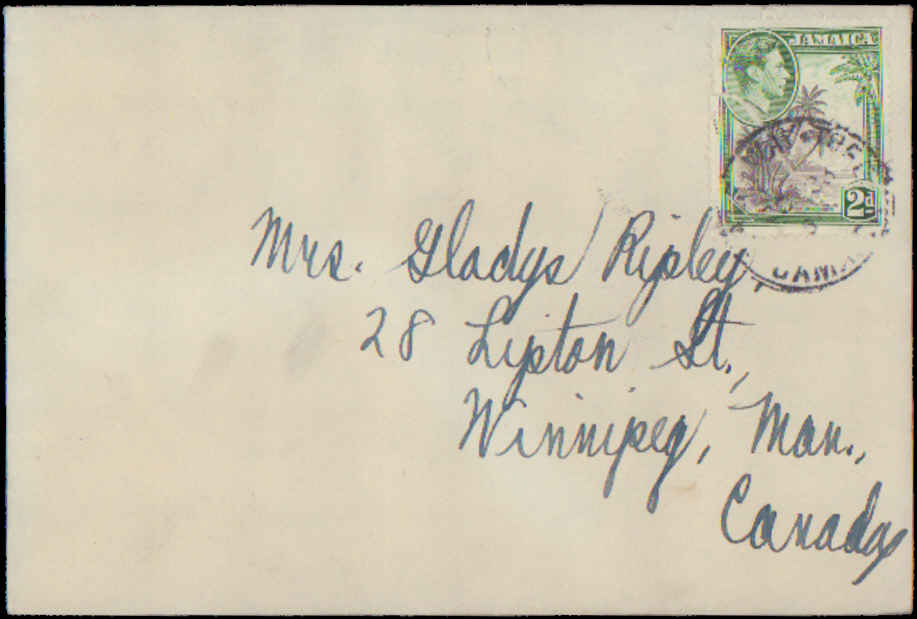 JAMAICA
2d
JAMA
Mrs. Gladys Ripley,
28 Lipton St.,
Winnipeg, Man.,
Canada